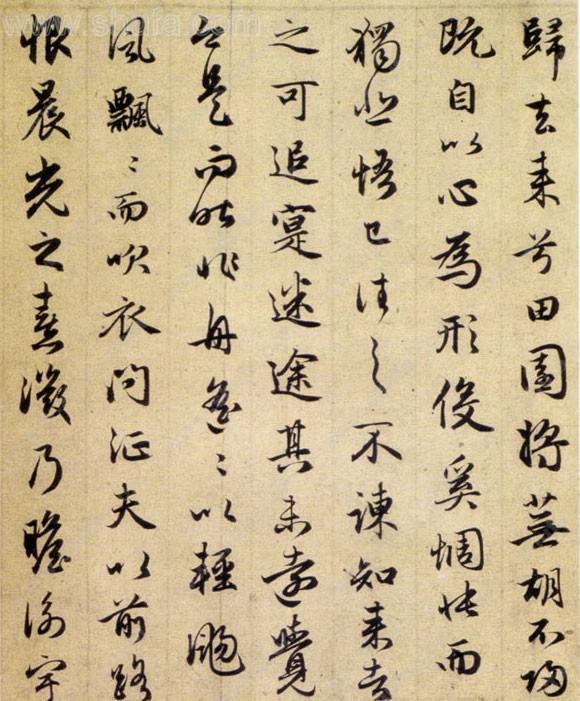 www.shufa.com
歸去来兮田園將蕪胡不歸
既自以心為形役奚惆悵而
獨悲悟已往之不諫知来者
之可追寔迷途其未遠覺
今是而昨非舟遙〻以輕颺
風飄〻而吹衣問征夫以前路
恨晨光之熹微乃瞻衡宇